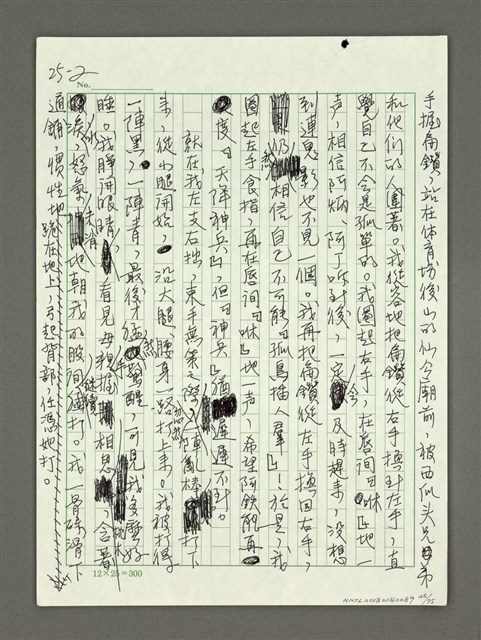 25-2
No.
手握扁鑽，站在体育場後山的仙公廟前，被西瓜头兄弟
和他們的人圍著。我從容地把扁鑽從右手換到左手，直
覺自己不会是孤單的。我圈起左手，在唇間『咻』地一
声，相信阿炳、阿丁听到後，一定会及時趕來，沒想
到連鬼影也不見一個。我再把扁鑽從左手換回右手，
仍然相信自己不可能『孤鳥插人羣』！於是，我
圈起左手食指，再在唇間『咻』地一声，希望阿欽能再
度『天降神兵』，但『神兵』遲遲不到。
就在我左支右拙，束手無策之際，忽然一陣亂棒打下
來，從小腿開始，沿大腿、腰身一路打上來。我被打得
一陣黑，一陣青，最後才猛然驚醒，可見我後壁好
睡。我睜開眼睛，看見母親手握相思，含著
淚，怒氣未消地朝我的股間繼續打。我一骨碌滑下
通鋪，慣性地跪在地上，弓起背部，任憑她打。
12×25=300